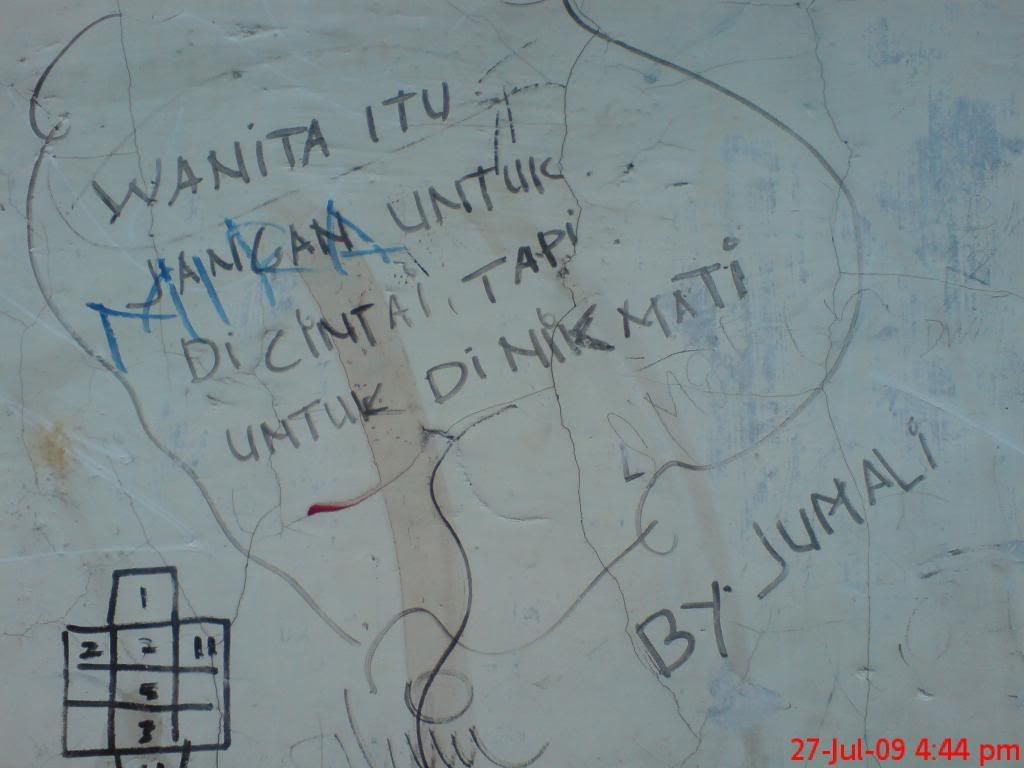 WANiTA iTU
JANGAN UNTUK
Di CiNTAi, TAPi
UNTUK DiNiKMATi
BY. JUMALi
1
2 2 11
5
3
27-Jul-09 4:44 pm